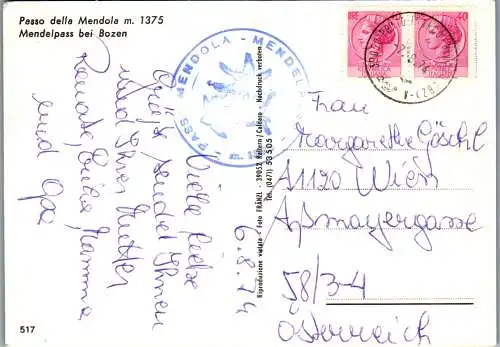 Passo della Mendola m. 1375
Mendelpass bei Bozen
PASS MENDOLA - MENDEL
m. 1
40
6.8.74
Viele liebe
Grüße sendet Ihnen
und Ihrer Mutter
Renate, Erika, Mamma
und Opa
Riproduzione vietata - Foto FRÄNZL - 39052 Kaltern / Caldaro - Nachdruck verboten
Tel. (0471) 53505
Frau
Margarethe Göschl
A1120 Wien
Aßmayergasse
58/3-4
Österreich
517